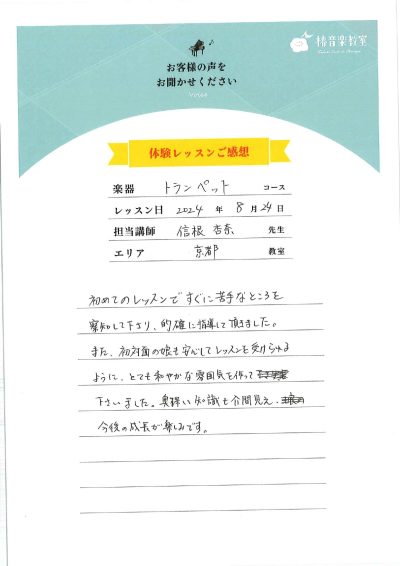 椿音楽教室
お客様の声を
お聞かせください
Voice
体験レッスンご感想
楽器 トランペット コース
レッスン日 2024 年 8 月 24 日
担当講師 信根 杏奈 先生
エリア 京都 教室
初めてのレッスンですぐに苦手なところを
察知して下さり、的確に指導して頂きました。
また、初対面の娘も安心してレッスンを受けられる
ように、とても和やかな雰囲気を作って
下さいました。奥深い知識も介間見え、
今後の成長が楽しみです。